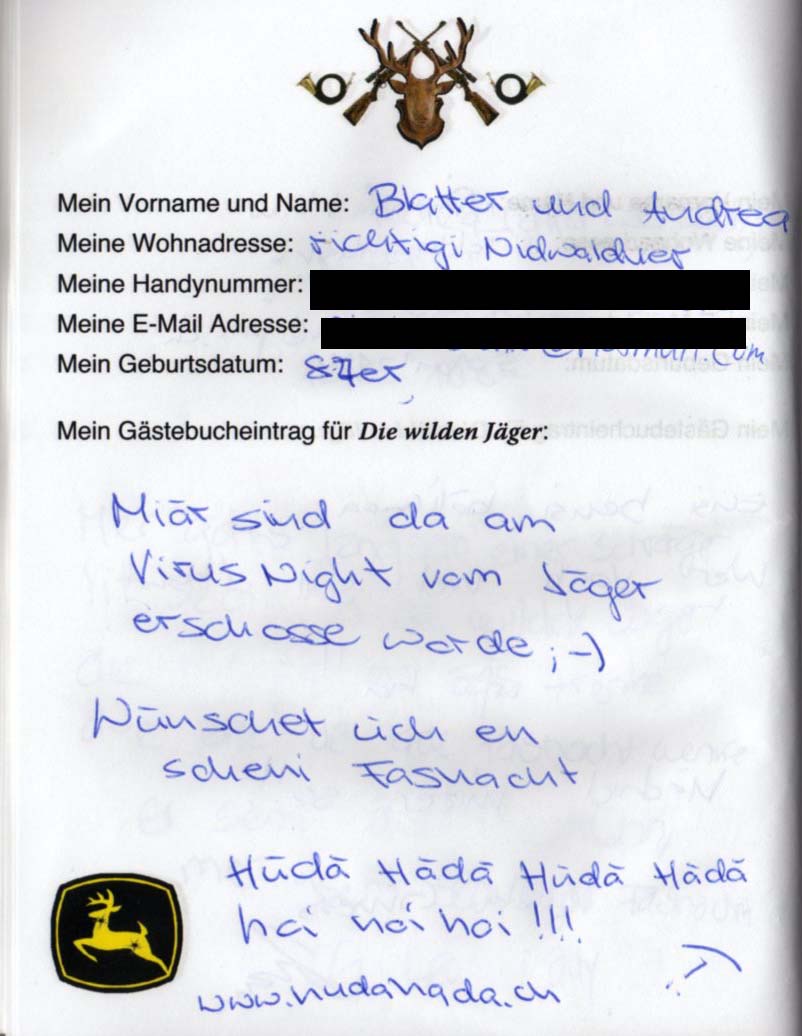 Mein Vorname und Name: Blatter und Andrea
Meine Wohnadresse: richtigi Nidwaldner
Meine Handynummer:
Meine E-Mail Adresse:
Mein Geburtsdatum: 87er
Mein Gästebucheintrag für Die wilden Jäger:
Miär sind da am
Virus Night vom Jäger
erschosse worde ;-)
Wünschet üch en
scheni Fasnacht
Hüdä Hädä Hüdä Hädä
hoi hoi hoi !!!
www.hudahada.ch